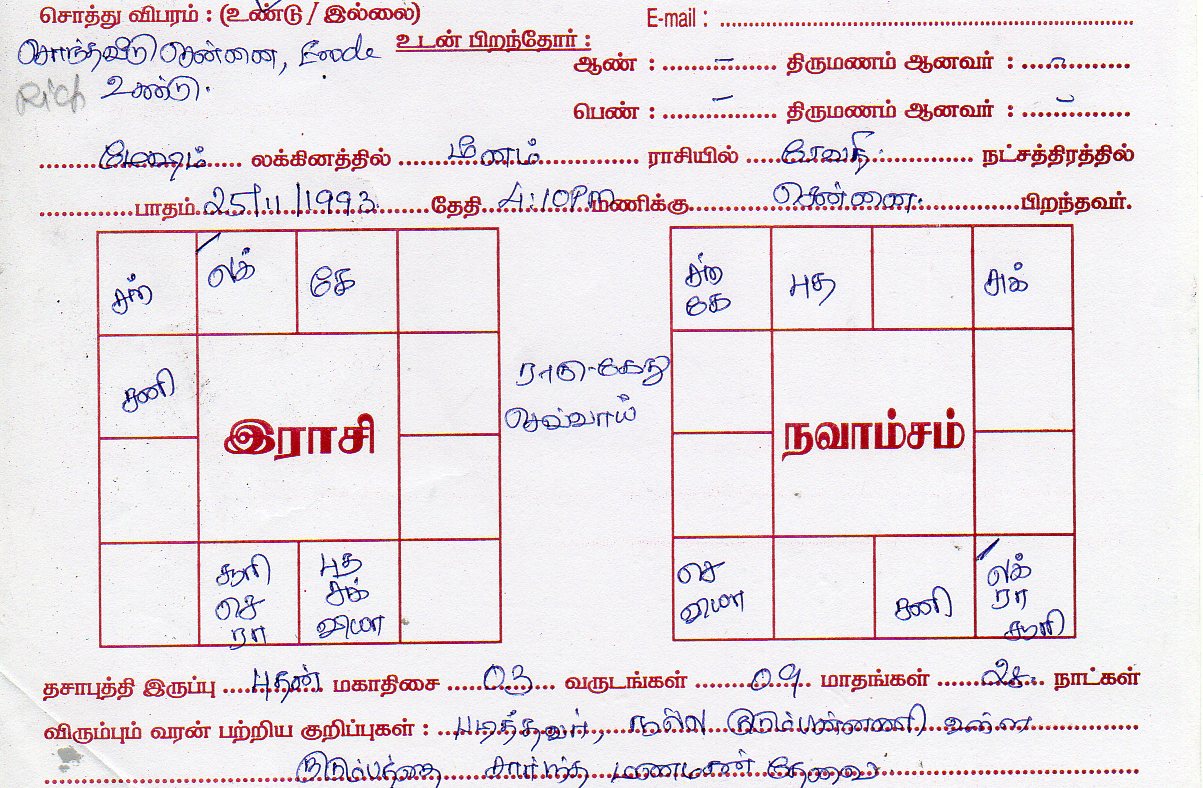 சொத்து விபரம் : (உண்டு / இல்லை)
E-mail :
சொந்தவீடு சென்னை, Erode
உடன் பிறந்தோர் :
ஆண் : – திருமணம் ஆனவர் : –
Rich உண்டு.
பெண் : – திருமணம் ஆனவர் : –
மேஷம் லக்கினத்தில் மீனம் ராசியில் ரேவதி நட்சத்திரத்தில்
பாதம் 25/11/1993 தேதி 4:10PM மணிக்கு சென்னை பிறந்தவர்.
சந் லக் கே
சனி
இராசி
சூரி புத
செ சுக்
ரா வியா
ராகு-கேது
செவ்வாய்
சந் புத சுக்
கே
நவாம்சம்
செ சனி லக்
வியா ரா
சூரி
தசாபுத்தி இருப்பு புதன் மகாதிசை 03 வருடங்கள் 09 மாதங்கள் 28 நாட்கள்
விரும்பும் வரன் பற்றிய குறிப்புகள் : படித்தவர், நல்ல குடும்பண்ணணி உள்ள
குடும்பத்தை சார்ந்த மணமகன் தேவை